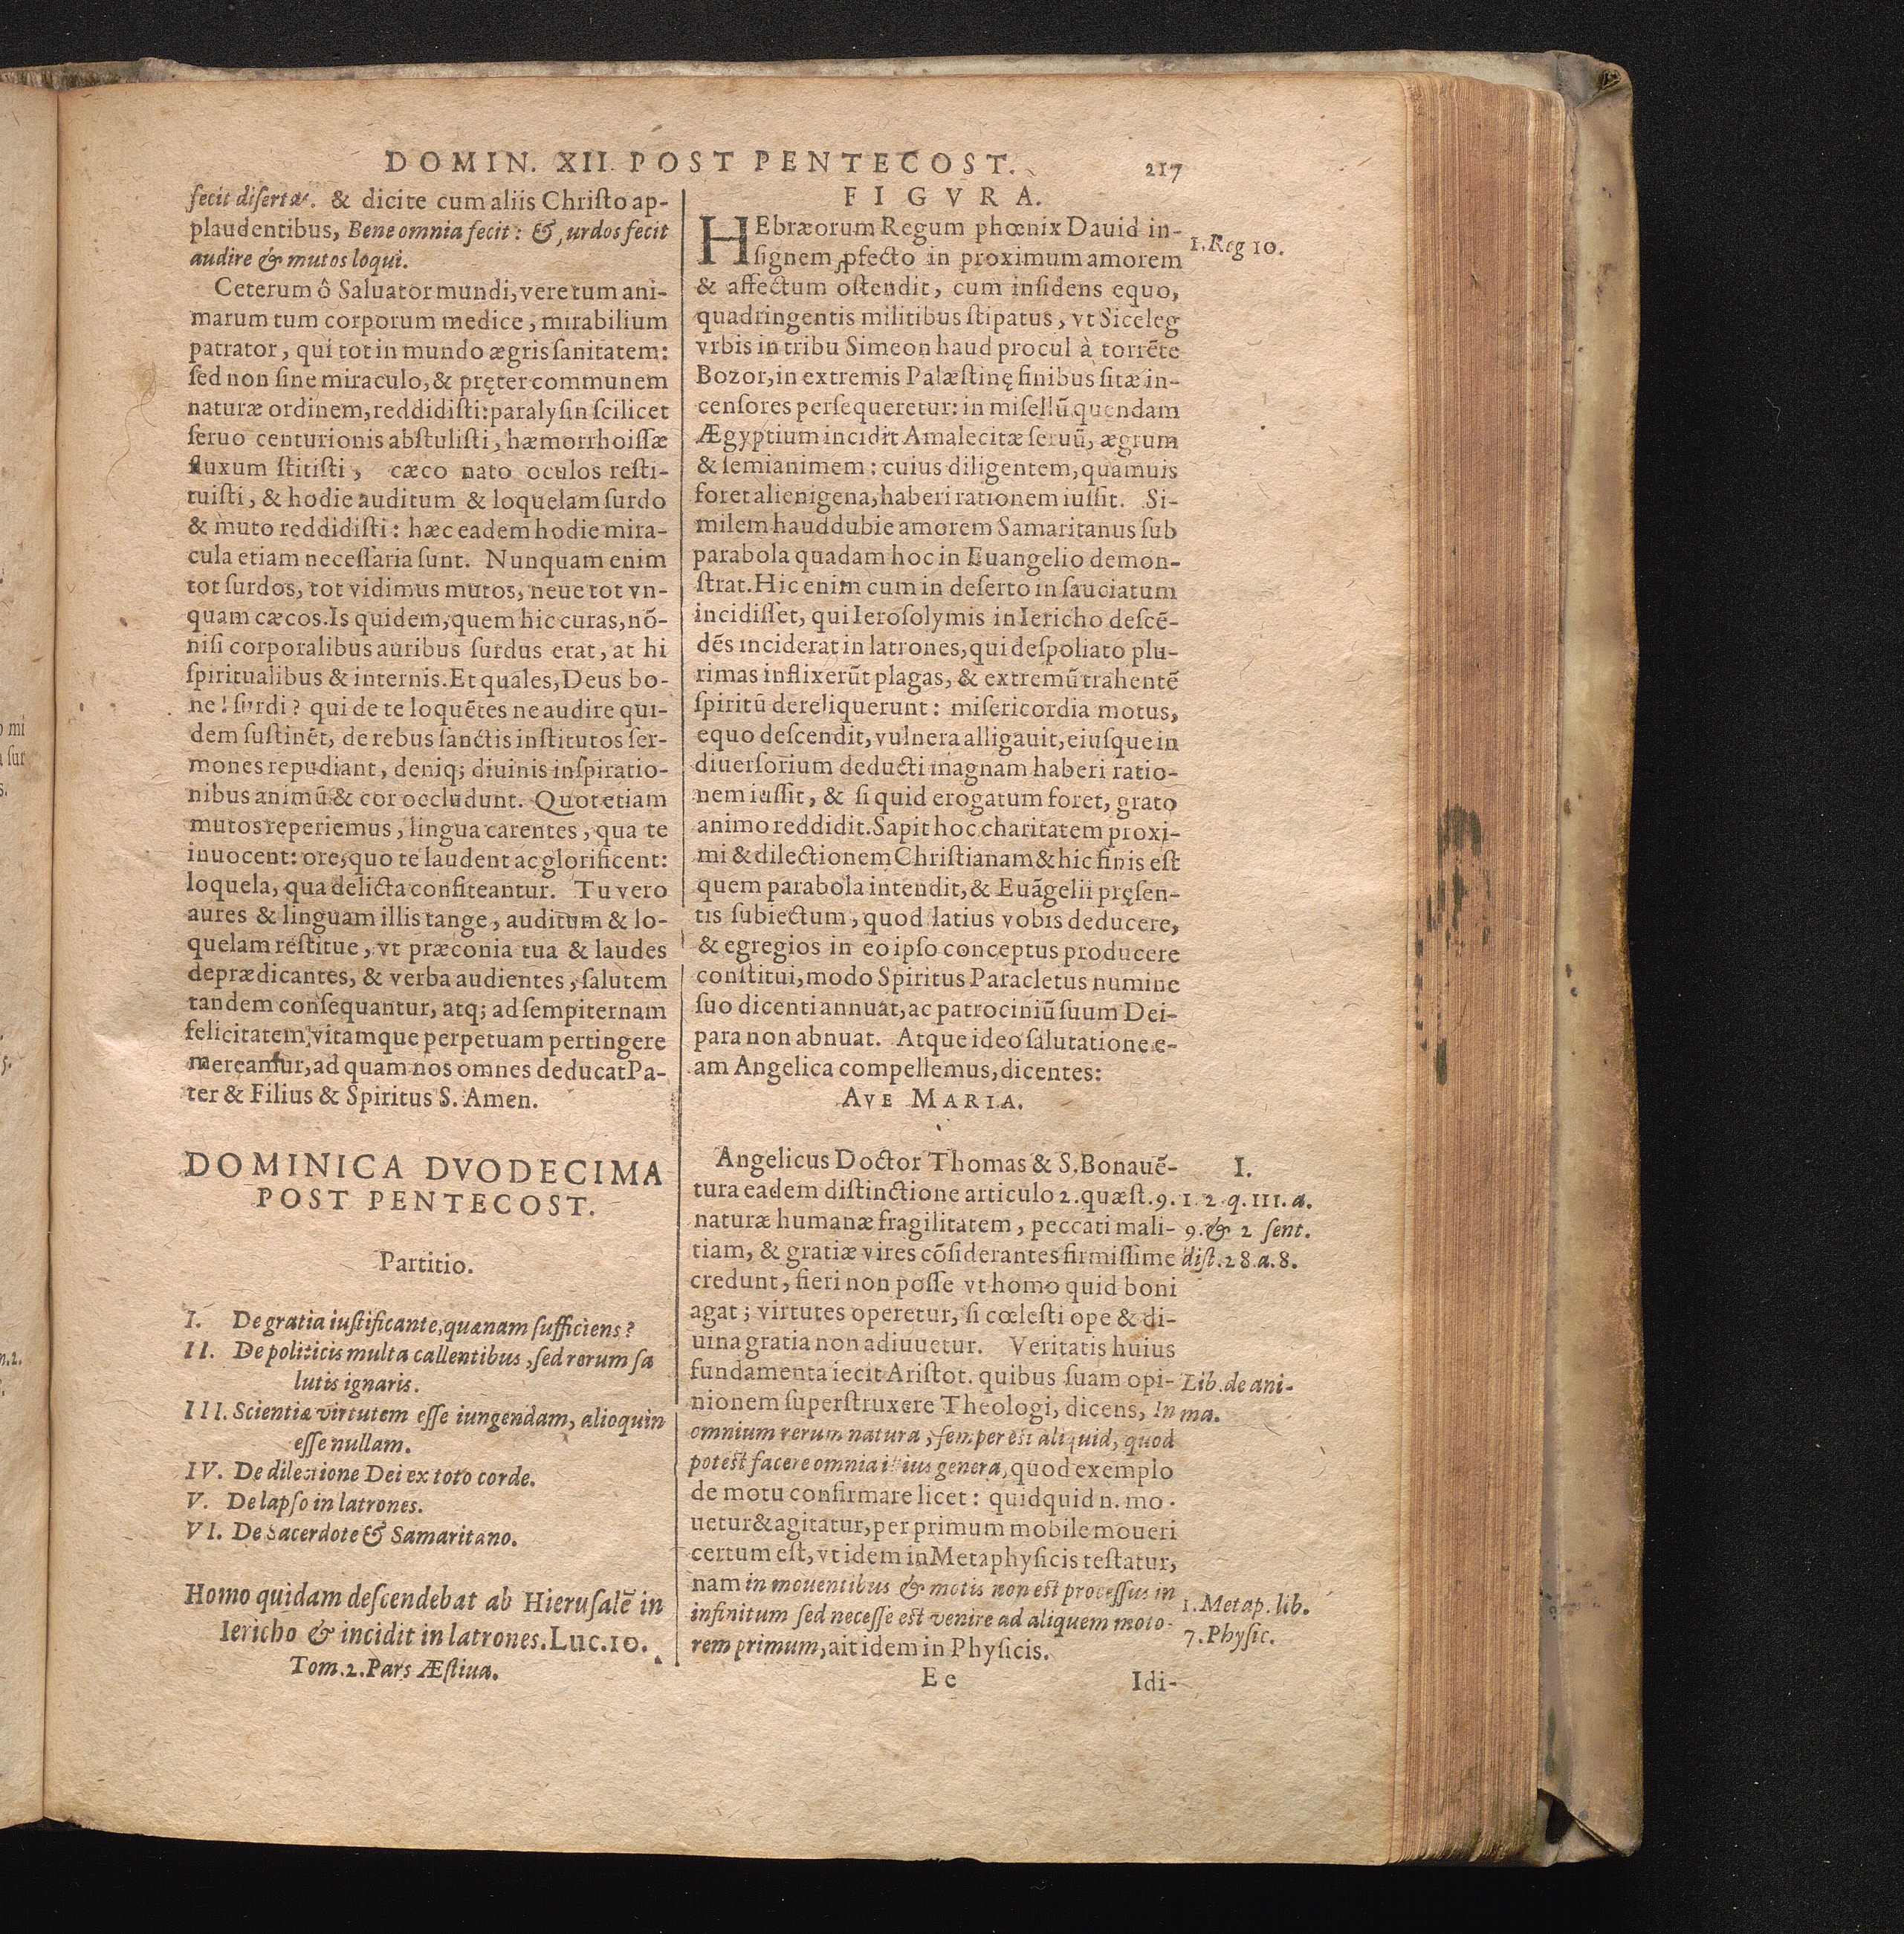 DOMIN. XII. POST PENTECOST. 217
fecit disertas. & dicite cum aliis Christo ap-
plaudentibus, Bene omnia fecit: & surdos fecit
audire & mutos loqui.
Ceterum ô Saluator mundi, vere tum ani-
marum tum corporum medice, mirabilium
patrator, qui tot in mundo ægris sanitatem:
sed non sine miraculo, & pręter communem
naturæ ordinem, reddidisti: paralysin scilicet
seruo centurionis abstulisti, hæmorrhoissæ
fluxum stitisti, cæco nato oculos resti-
tuisti, & hodie auditum & loquelam surdo
& muto reddidisti: hæc eadem hodie mira-
cula etiam necessaria sunt. Nunquam enim
tot surdos, tot vidimus mutos, neue tot vn-
quam cæcos. Is quidem, quem hic curas, nō-
nisi corporalibus auribus surdus erat, at hi
spiritualibus & internis. Et quales, Deus bo-
ne! surdi? qui de te loquētes ne audire qui-
dem sustinēt, de rebus sanctis institutos ser-
mones repudiant, deniq; diuinis inspiratio-
nibus animū & cor occludunt. Quot etiam
mutos reperiemus, lingua carentes, qua te
inuocent: ore, quo te laudent ac glorificent:
loquela, qua delicta confiteantur. Tu vero
aures & linguam illis tange, auditum & lo-
quelam restitue, vt præconia tua & laudes
deprædicantes, & verba audientes, salutem
tandem consequantur, atq; ad sempiternam
felicitatem, vitamque perpetuam pertingere
mereantur, ad quam nos omnes deducat Pa-
ter & Filius & Spiritus S. Amen.
DOMINICA DVODECIMA
POST PENTECOST.
Partitio.
I. De gratia iustificante, quænam sufficiens?
II. De politicis multa callentibus, sed rerum sa
lutis ignaris.
III. Scientiæ virtutem esse iungendam, alioquin
esse nullam.
IV. De dilectione Dei ex toto corde.
V. De lapso in latrones.
VI. De Sacerdote & Samaritano.
Homo quidam descendebat ab Hierusalē in
Iericho & incidit in latrones. Luc. 10.
Tom. 2. Pars Æstiua.
FIGVRA.
HEbræorum Regum phœnix Dauid in-
signem ꝓfecto in proximum amorem
& affectum ostendit, cum insidens equo,
quadringentis militibus stipatus, vt Siceleg
vrbis in tribu Simeon haud procul à torrēte
Bozor, in extremis Palæstinę finibus sitæ in-
censores persequeretur: in misellū quendam
Ægyptium incidit Amalecitæ seruū, ægrum
& semianimem: cuius diligentem, quamuis
foret alienigena, haberi rationem iussit. Si-
milem haud dubie amorem Samaritanus sub
parabola quadam hoc in Euangelio demon-
strat. Hic enim cum in deserto in sauciatum
incidisset, qui Ierosolymis in Iericho descē-
dēs inciderat in latrones, qui despoliato plu-
rimas inflixerūt plagas, & extremū trahentē
spiritū dereliquerunt: misericordia motus,
equo descendit, vulnera alligauit, eiusque in
diuersorium deducti magnam haberi ratio-
nem iussit, & si quid erogatum foret, grato
animo reddidit. Sapit hoc charitatem proxi-
mi & dilectionem Christianam & hic finis est
quem parabola intendit, & Euāgelii pręsen-
tis subiectum, quod latius vobis deducere,
& egregios in eo ipso conceptus producere
constitui, modo Spiritus Paracletus numine
suo dicenti annuat, ac patrociniū suum Dei-
para non abnuat. Atque ideo salutatione e-
am Angelica compellemus, dicentes:
AVE MARIA.
Angelicus Doctor Thomas & S. Bonauē-
tura eadem distinctione articulo 2. quæst. 9.
naturæ humanæ fragilitatem, peccati mali-
tiam, & gratiæ vires cōsiderantes firmissime
credunt, fieri non posse vt homo quid boni
agat; virtutes operetur, si cœlesti ope & di-
uina gratia non adiuuetur. Veritatis huius
fundamenta iecit Aristot. quibus suam opi-
nionem superstruxere Theologi, dicens, In
omnium rerum natura, semper est aliquid, quod
potest facere omnia illius genera, quod exemplo
de motu confirmare licet: quidquid n. mo-
uetur & agitatur, per primum mobile moueri
certum est, vt idem in Metaphysicis testatur,
nam in mouentibus & motis non est processus in
infinitum sed necesse est venire ad aliquem moto-
rem primum, ait idem in Physicis.
Ee Idi-
1. Reg 10.
I.
1. 2. q. III. a.
9. & 2 sent.
dist. 28. a. 8.
Lib. de ani-
ma.
1. Metap. lib.
7. Physic.